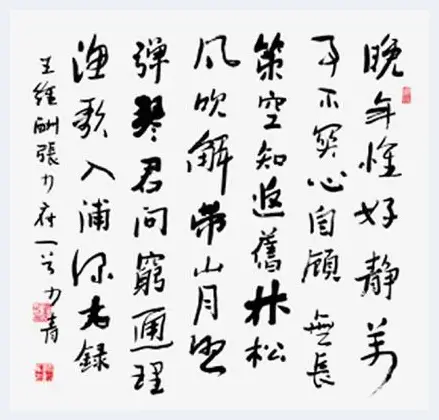 晚年惟好靜萬
事不關心自顧無長
策空知返舊林松
風吹解帶山月照
彈琴君問窮通理
漁歌入浦深右錄
王維酬張少府一首